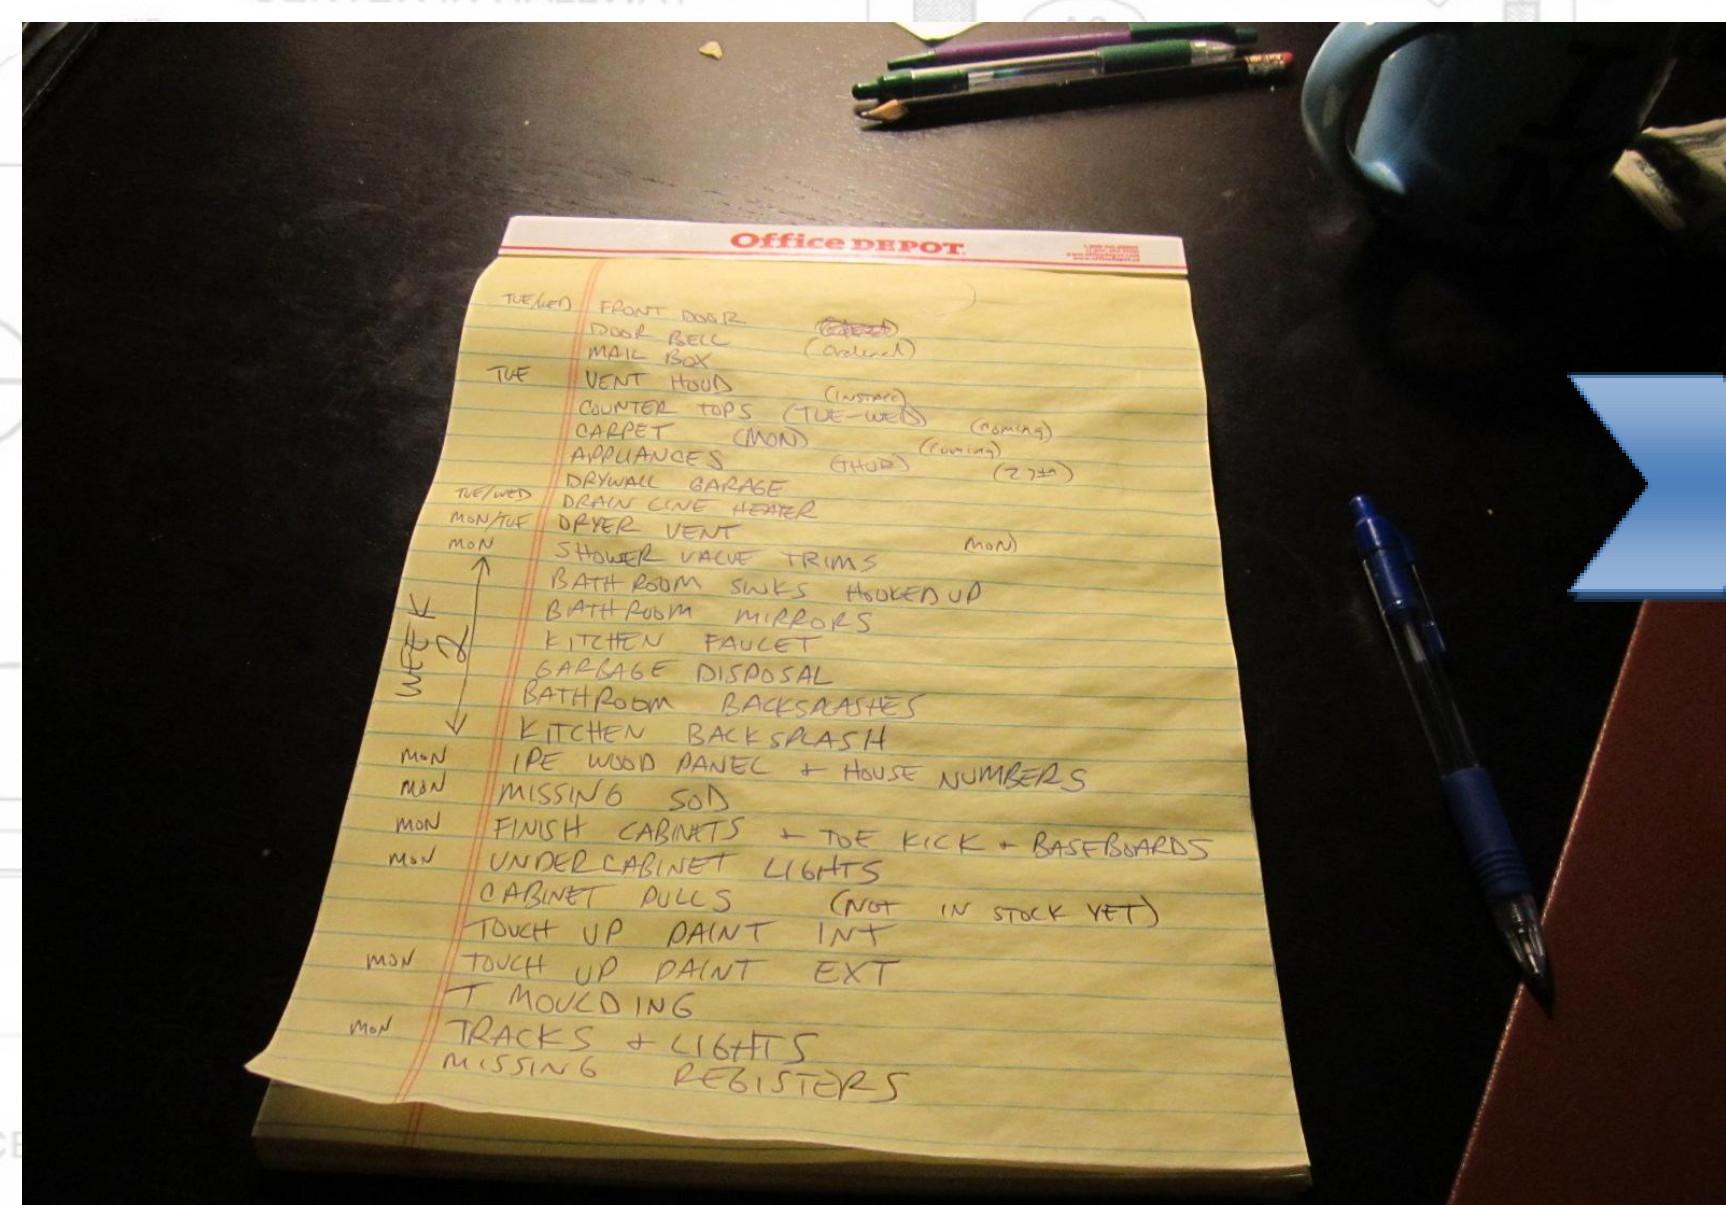 Office DEPOT
TUE/WED FRONT DOOR
DOOR BELL (Ordered)
MAIL BOX
TUE VENT HOOD (INSTALL)
COUNTER TOPS (TUE-WED) (coming)
CARPET (MON) (coming)
APPLIANCES (THUR) (27th)
DRYWALL GARAGE
TUE/WED DRAIN LINE HEATER
MON/TUE DRYER VENT MON)
MON SHOWER VALVE TRIMS
BATHROOM SINKS HOOKED UP
BATHROOM MIRRORS
WEEK 2 KITCHEN FAUCET
GARBAGE DISPOSAL
BATHROOM BACKSPLASHES
KITCHEN BACKSPLASH
MON IPE WOOD PANEL + HOUSE NUMBERS
MON MISSING SOD
MON FINISH CABINETS + TOE KICK + BASEBOARDS
MON UNDERCABINET LIGHTS
CABINET PULLS (NOT IN STOCK YET)
TOUCH UP PAINT INT
MON TOUCH UP PAINT EXT
T MOULDING
MON TRACKS + LIGHTS
MISSING REGISTERS